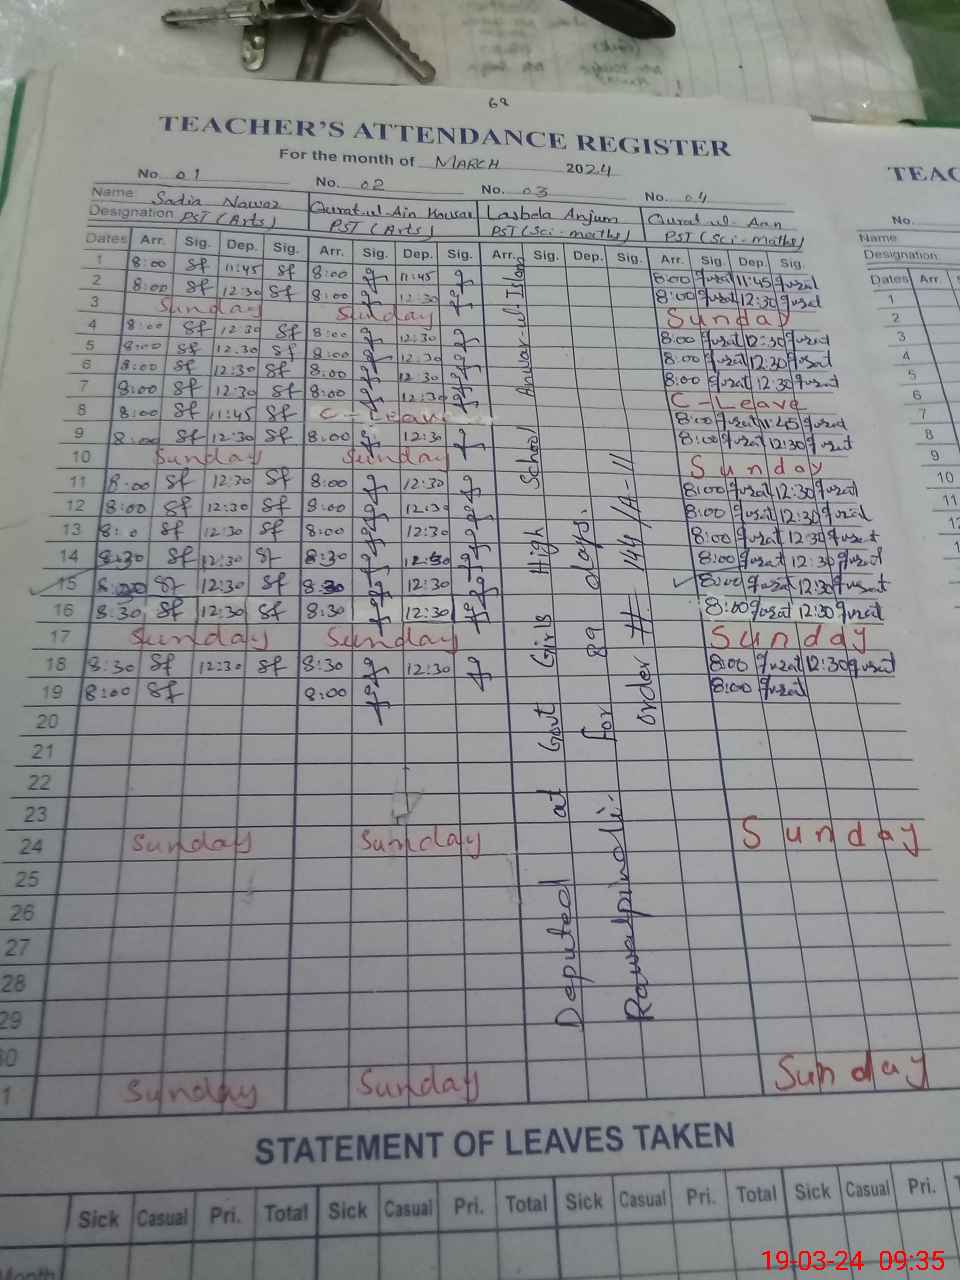 68
TEACHER'S ATTENDANCE REGISTER
For the month of MARCH 2024
No. 01 No. 02 No. 03 No. 04
Name: Sadia Nawaz Quratul Ain Kousar Lasbela Anjum Qurat ul Ann
Designation PST (Arts) PST (Arts) PST (Sci-maths) PST (Sci-maths)
Dates Arr. Sig. Dep. Sig. Arr. Sig. Dep. Sig. Arr. Sig. Dep. Sig. Arr. Sig. Dep. Sig.
1 8:00 Sf 11:45 Sf 8:00 11:45 8:00 Qurat 11:45 Qurat
2 8:00 Sf 12:30 Sf 8:00 12:30 8:00 Qurat 12:30 Qurat
3 Sunday Sunday Sunday
4 8:00 Sf 12:30 Sf 8:00 12:30 8:00 Qurat 12:30 Qurat
5 8:00 Sf 12:30 Sf 8:00 12:30 8:00 Qurat 12:30 Qurat
6 8:00 Sf 12:30 Sf 8:00 12:30 8:00 Qurat 12:30 Qurat
7 8:00 Sf 12:30 Sf 8:00 12:30 C-Leave
8 8:00 Sf 11:45 Sf C-Leave 8:00 Qurat 11:45 Qurat
9 8:00 Sf 12:30 Sf 8:00 12:30 8:00 Qurat 12:30 Qurat
10 Sunday Sunday Sunday
11 8:00 Sf 12:30 Sf 8:00 12:30 8:00 Qurat 12:30 Qurat
12 8:00 Sf 12:30 Sf 8:00 12:30 8:00 Qurat 12:30 Qurat
13 8:0 Sf 12:30 Sf 8:00 12:30 8:00 Qurat 12:30 Qurat
14 8:30 Sf 12:30 Sf 8:30 12:30 8:00 Qurat 12:30 Qurat
15 Sf 12:30 Sf 8:30 12:30 8:00 Qurat 12:30 Qurat
16 8:30 Sf 12:30 Sf 8:30 12:30 8:00 Qurat 12:30 Qurat
17 Sunday Sunday Sunday
18 8:30 Sf 12:30 Sf 8:30 12:30 8:00 Qurat 12:30 Qurat
19 8:00 Sf 8:00 8:00 Qurat
20
21
22
23
24 Sunday Sunday Sunday
25
26
27
28
29
30
1 Sunday Sunday Sunday
Deputed at Govt Girls High School Anwar-ul-Islam
Rawalpindi. for 89 days.
order # 144/A-11
STATEMENT OF LEAVES TAKEN
Sick Casual Pri. Total Sick Casual Pri. Total Sick Casual Pri. Total Sick Casual Pri.
Month
TEAC
No.
Name
Designation
Dates Arr.
1
2
3
4
5
6
7
8
9
10
11
19-03-24 09:35